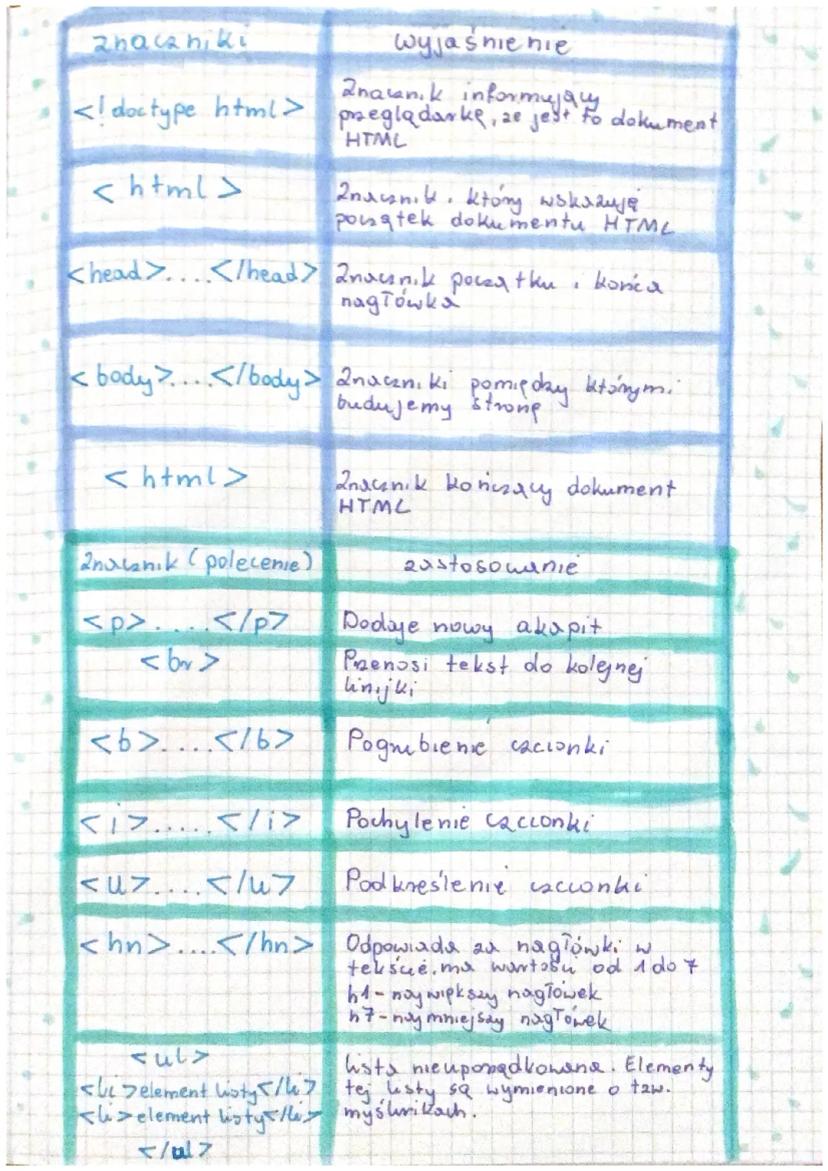 znaczniki wyjaśnienie
<!doctype html> Znacznik informujący
przeglądarkę, że jest to dokument
HTML
<html> Znacznik, który wskazuję
początek dokumentu HTML
<head>....</head> Znacznik początku i końca
nagłówka
<body>....</body> Znaczniki pomiędzy którymi
budujemy stronę
<html> Znacznik kończący dokument
HTML
Znacznik (polecenie) zastosowanie
<p>....</p> Dodaje nowy akapit
<br> Przenosi tekst do kolejnej
linijki
<b>....</b> Pogrubienie czcionki
<i>.....</i> Pochylenie czcionki
<u>....</u> Podkreślenie czcionki
<hn>....</hn> Odpowiada za nagłówki w
tekście, ma wartości od 1 do 7
h1-największy nagłówek
h7-najmniejszy nagłówek
<ul> Lista nieuporządkowana. Elementy
<li>element listy</li> tej listy są wymienione o tzw.
<li>element listy</li> myślnikach.
</ul>